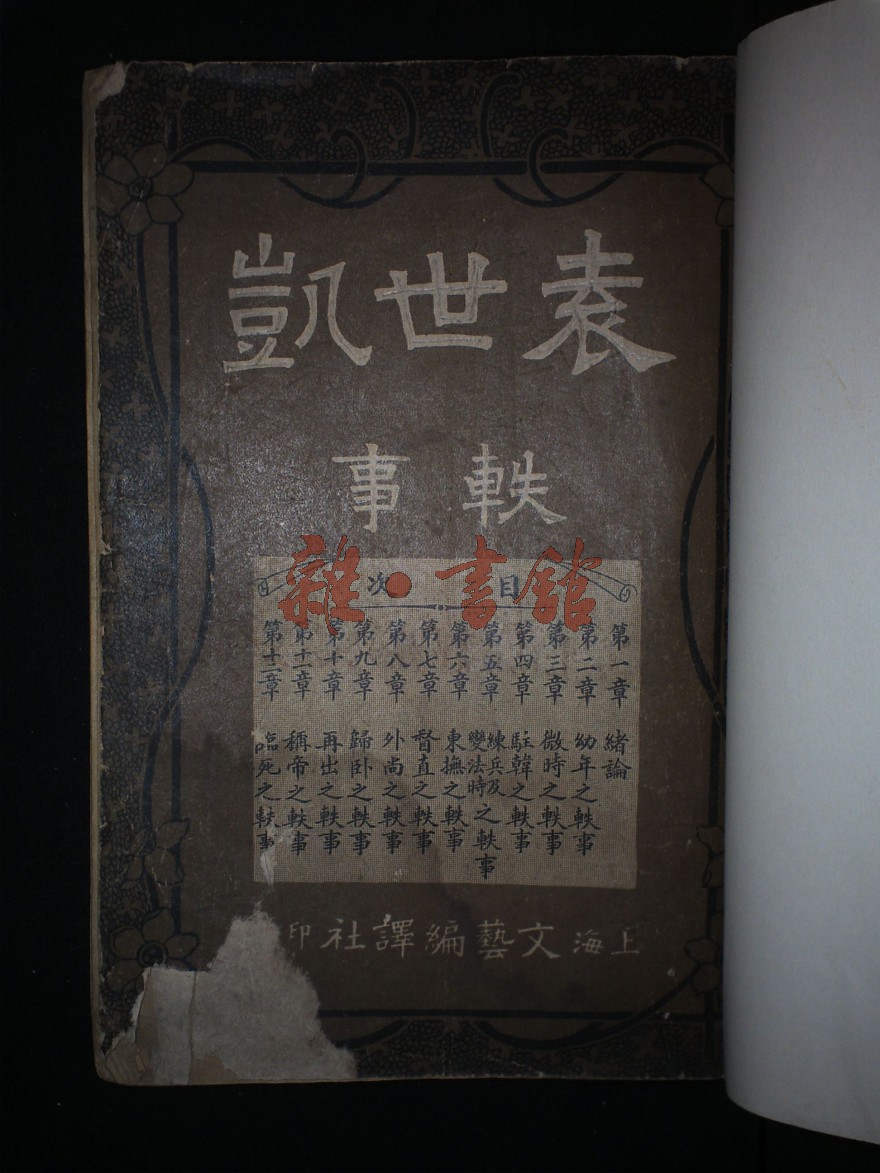 袁世凱
軼事
目次
第一章 緒論
第二章 幼年之軼事
第三章 微時之軼事
第四章 駐韓之軼事
第五章 練兵及變法時之軼事
第六章 東撫之軼事
第七章 督直之軼事
第八章 外尚之軼事
第九章 歸卧之軼事
第十章 再出之軼事
第十一章 稱帝之軼事
第十二章 臨死之軼事
上海文藝編譯社印
雜·書館